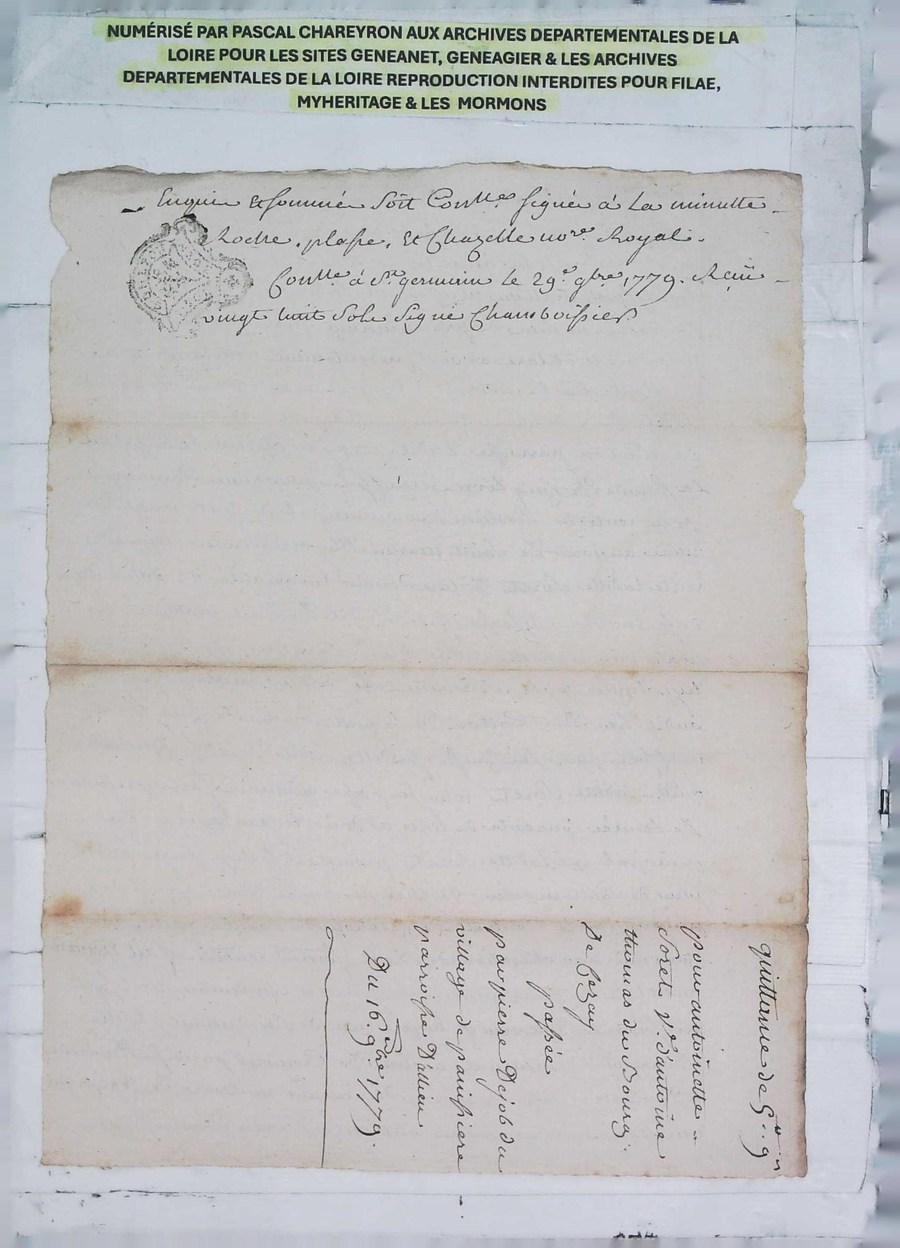 NUMÉRISÉ PAR PASCAL CHAREYRON AUX ARCHIVES DEPARTEMENTALES DE LA
LOIRE POUR LES SITES GENEANET, GENEAGIER & LES ARCHIVES
DEPARTEMENTALES DE LA LOIRE REPRODUCTION INTERDITES POUR FILAE,
MYHERITAGE & LES MORMONS
Enquis Et sommée soit Con^tlles signée à La minutte
Roche, plasse, Et Chazelle no^re Royal.
Con^tlle à S^t germain le 29^e 9^bre 1779. Reçü
vingt huit Sols Signé Chamboissier
quittance de
pour antoinette
Soret v^e d'antoine
thomas du Bourg
De Cezay
passée
par pierre Dejob du
village de panissiere
parroisse D'allieu
Du 16. 9^bre 1779.